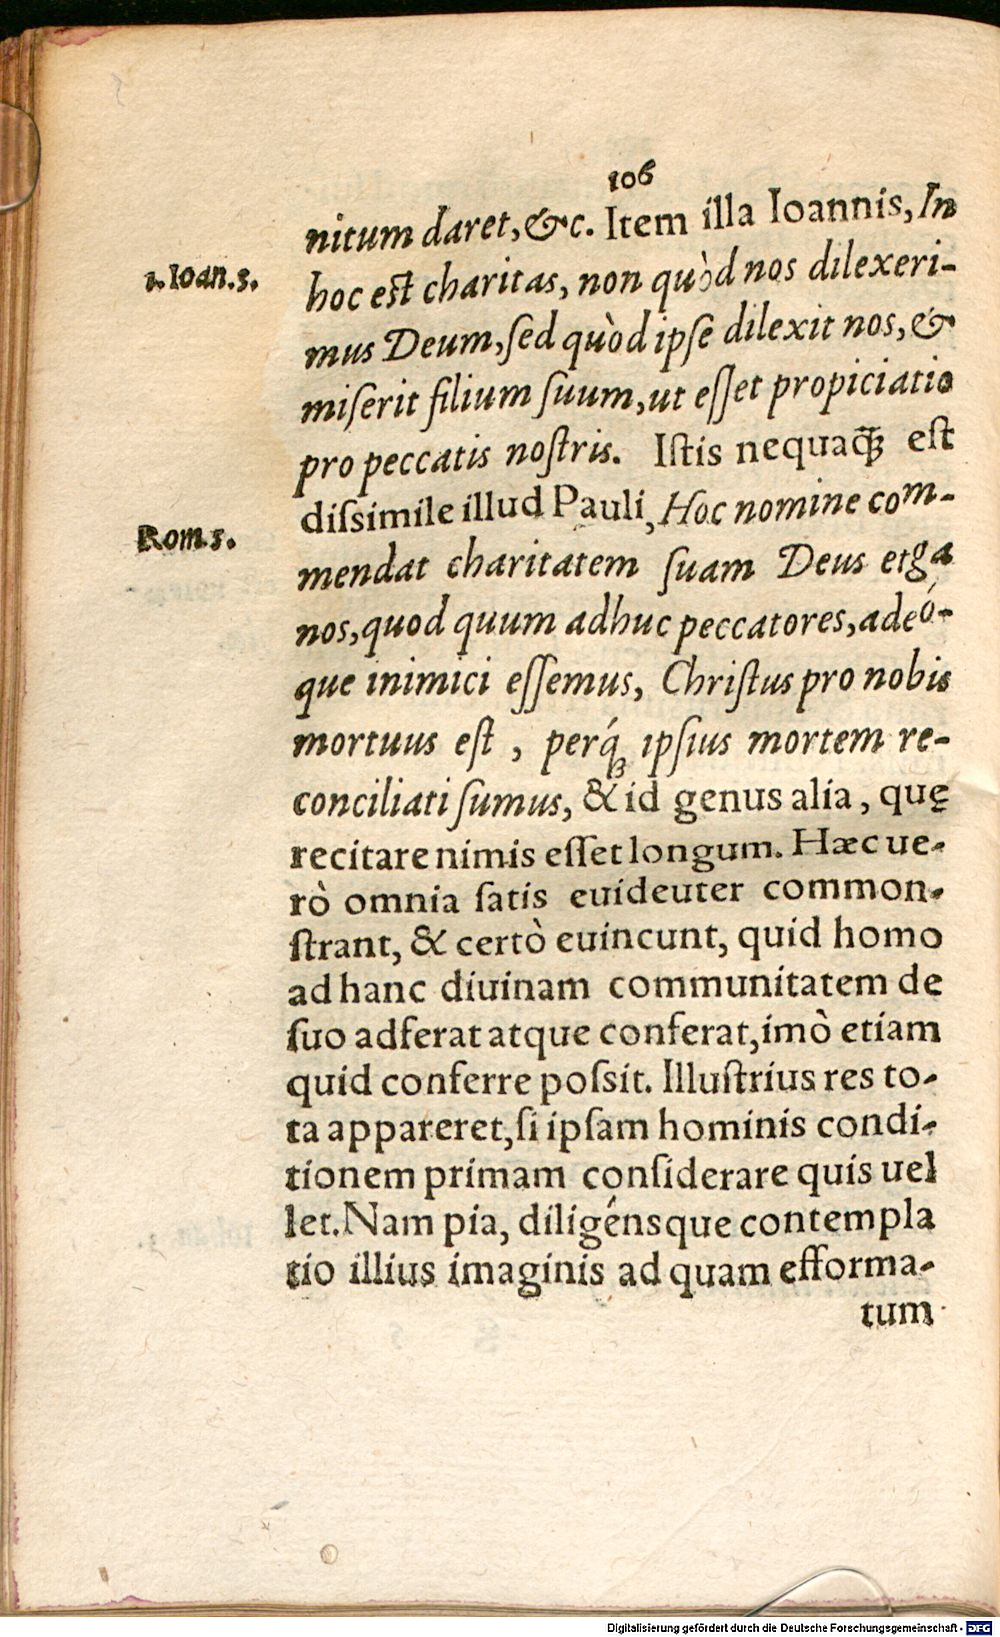 106
nitum daret, &c. Item illa Ioannis, In
1. Ioan. 3.
hoc est charitas, non quòd nos dilexeri-
mus Deum, sed quòd ipſe dilexit nos, &
miſerit filium ſuum, ut eſſet propiciatio
pro peccatis noſtris. Iſtis nequaꝗ̃ eſt
diſsimile illud Pauli, Hoc nomine com-
Rom. 5.
mendat charitatem ſuam Deus erga
nos, quod quum adhuc peccatores, adeó-
que inimici eſſemus, Chriſtus pro nobis
mortuus eſt, perq́ꝫ ipſius mortem re-
conciliati ſumus, & id genus alia, quę
recitare nimis eſſet longum. Hæc ue-
rò omnia ſatis euideuter common-
ſtrant, & certò euincunt, quid homo
ad hanc diuinam communitatem de
ſuo adferat atque conferat, imò etiam
quid conferre poſsit. Illuſtrius res to-
ta appareret, ſi ipſam hominis condi-
tionem primam conſiderare quis uel
let. Nam pia, diligénsque contempla
tio illius imaginis ad quam efforma-
tum
Digitalisierung gefördert durch die Deutsche Forschungsgemeinschaft - DFG